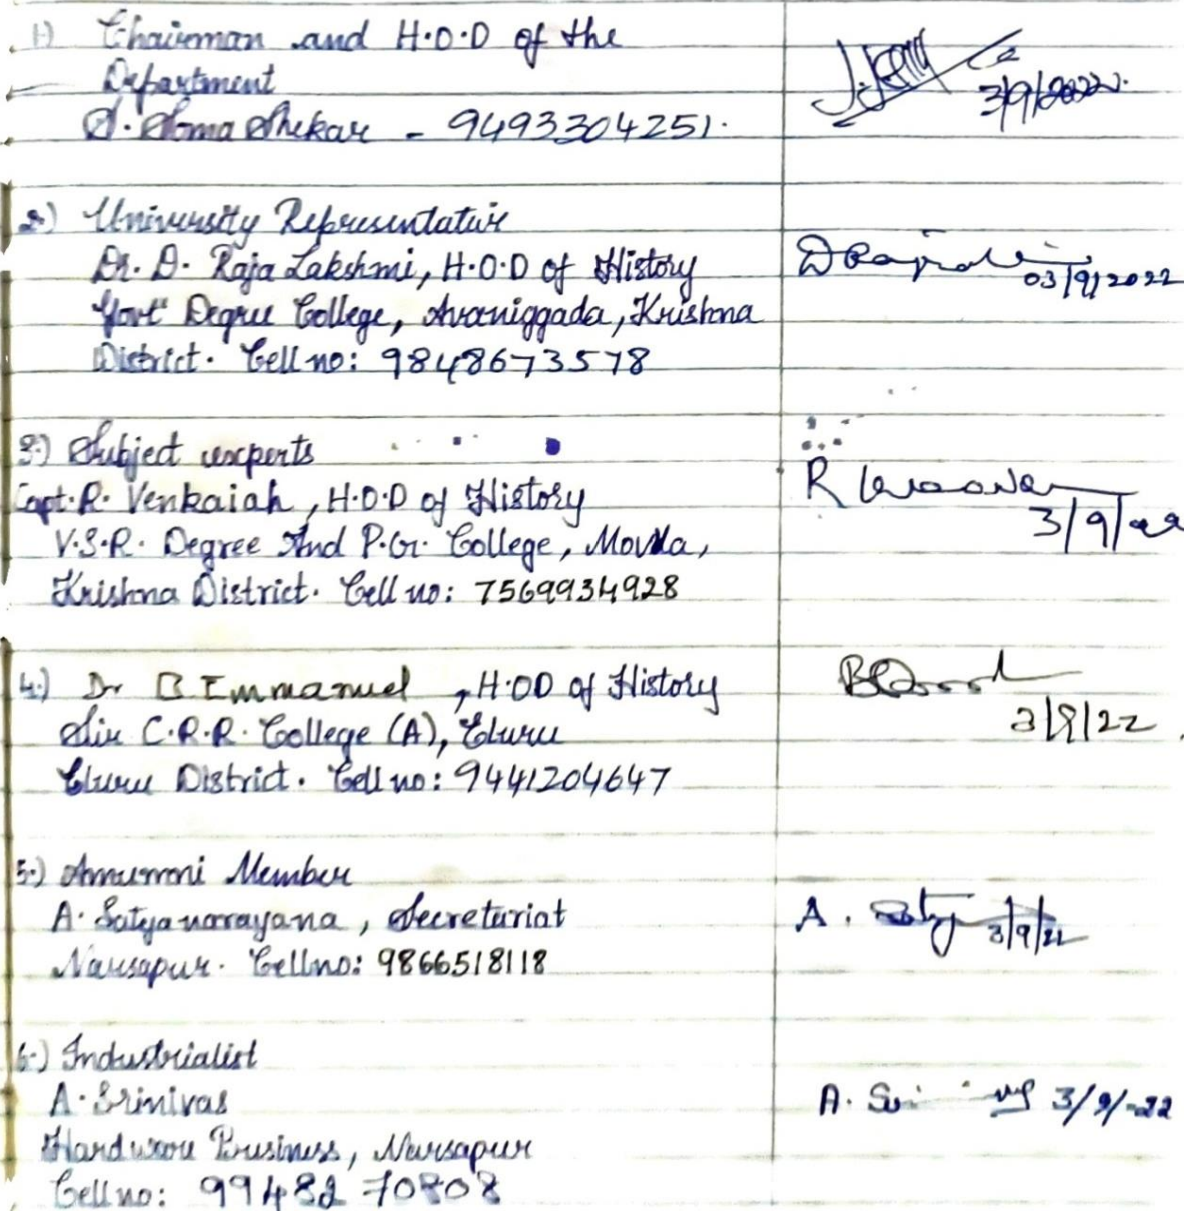 1) Chairman and H.O.D of the
Department
S. Soma Shekar - 9493304251.
3/9/2022.
2.) University Representative
Dr. D. Raja Lakshmi, H.O.D of History
Govt Degree College, Avaniggada, Krishna
District. Cell no: 9848673578
03/9/2022
3.) Subject experts
Capt. R. Venkaiah, H.O.D of History
V.S.R. Degree And P.G. College, Movva,
Krishna District. Cell no: 7569934928
R
3/9/22
4.) Dr B Emmanuel, H.OD of History
Sir C.R.R. College (A), Eluru
Eluru District. Cell no: 9441204647
3/9/22
5.) Amumni Member
A. Satyanarayana, Secretariat
Narsapur. Cell no: 9866518118
A. 3/9/22
6.) Industrialist
A. Srinivas
Hardware Business, Narsapur
Cell no: 99482 70808
A. 3/9/-22